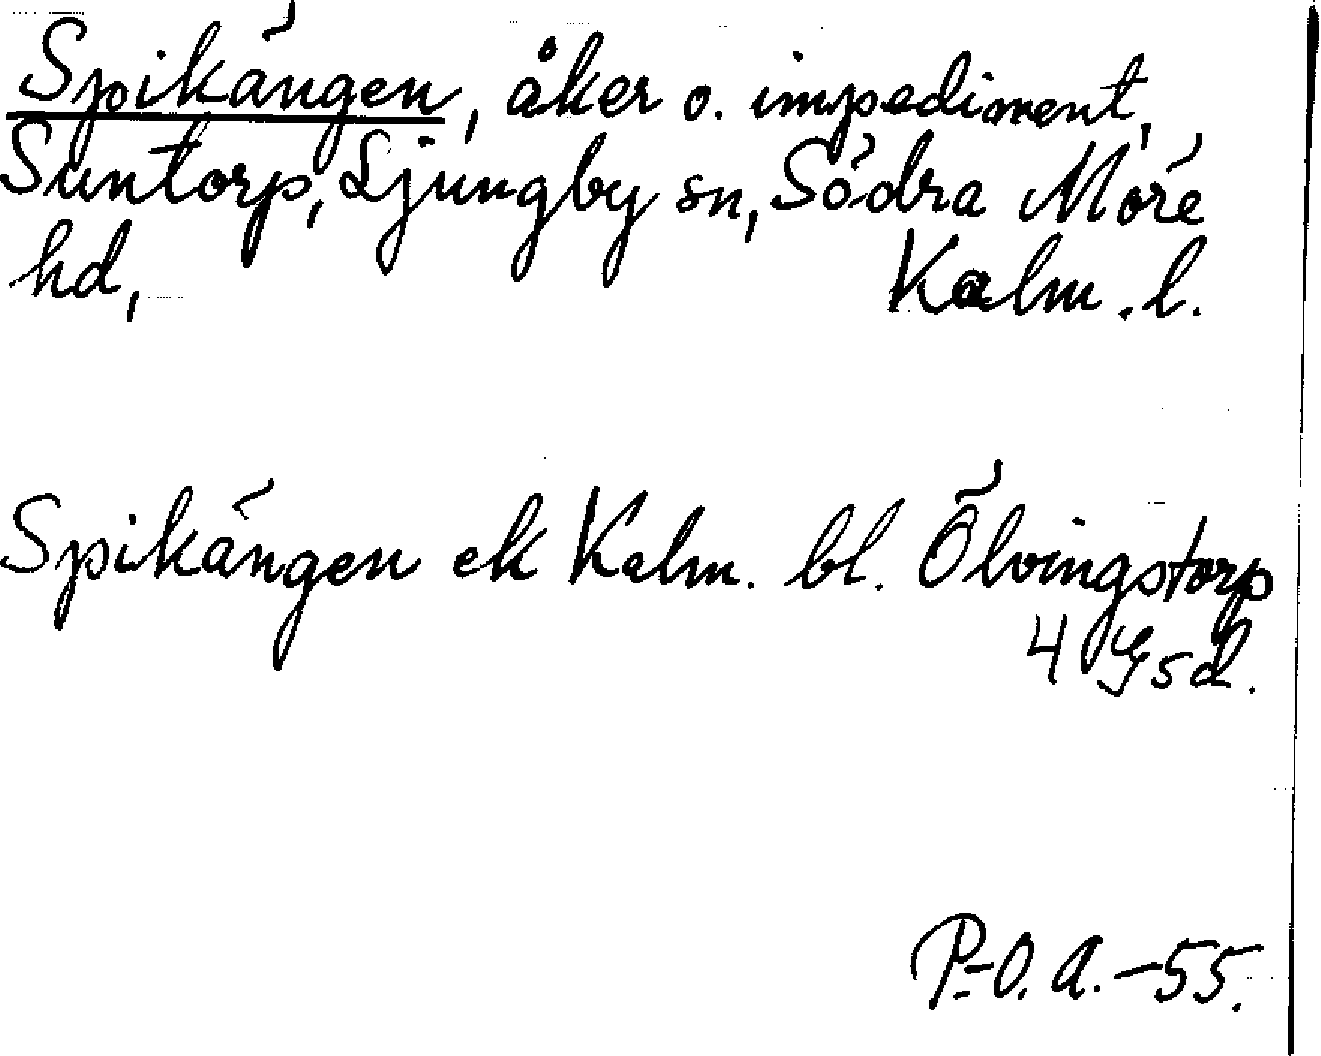 Spikängen, åker o. impediment,
Suntorp, Ljungby sn, Södra Möre
hd, Kalm. l.
Spikängen ek Kalm. bl. Ölvingstorp
4 Gsd.
P.-O. A. -55.